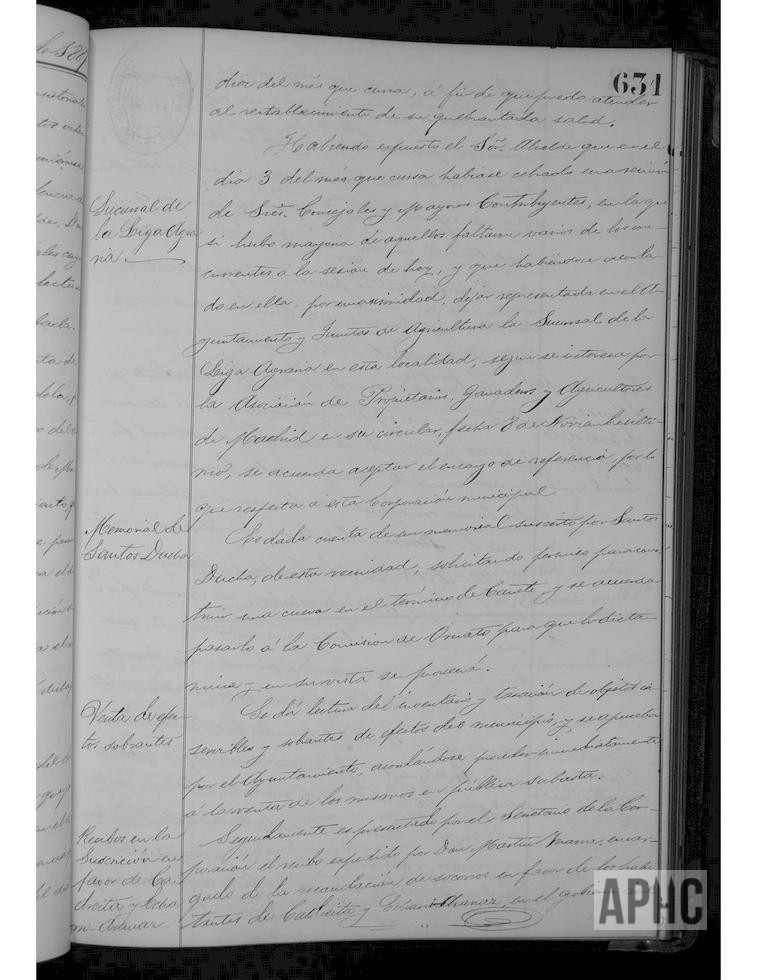 631
dias del més que cursa, á fin de que pueda atender
al restablecimiento de su quebrantada salud.
Sucursal de
la Liga Agra
ria
Habiendo expuesto el Sor. Alcalde que en el
dia 3 del més que cursa habiase celebrado una reunión
de Sres. Concejales y Mayores Contribuyentes, en la que
si hubo mayoria de aquellos faltaron varios de los con-
currentes a la sesión de hoy, y que habiéndose acorda-
do en ella, por unanimidad, dejar representada en el A-
yuntamiento y Juntas de Agricultura la Sucursal de la
Liga Agraria en esta localidad, segun se interesa por
la Asociación de Propietarios, Ganaderos y Agricultores
de Madrid en su circular, fecha 8 de Noviembre últi-
mo, se acuerda aceptar el encargo de referencia, por lo
que respecta á esta Corporación municipal
Memorial de
Santos Ducha
Es dada cuenta de un memorial suscrito por Santos
Ducha, de esta vecindad, solicitando permiso para cons
truir una cueva en el término de Cañete, y se acuerda
pasarlo á la Comision de Ornato para que lo dicta-
mine y en su vista se proveerá.
Venta de efec-
tos sobrantes
Se dá lectura del inventario y tasación de objetos in-
servibles y sobrantes de efectos del municipio, y se aprueba
por el Ayuntamiento, acordándose proceder inmediatamente
á la venta de los mismos en pública subasta.
Recibos en la
Suscrición en
favor de
y
Seguidamente es presentado por el Secretario de la Cor-
poración el recibo expedido por Don Martin encar-
gado de la recaudación de socorros en favor de los habi-
tantes de y en el
APHC